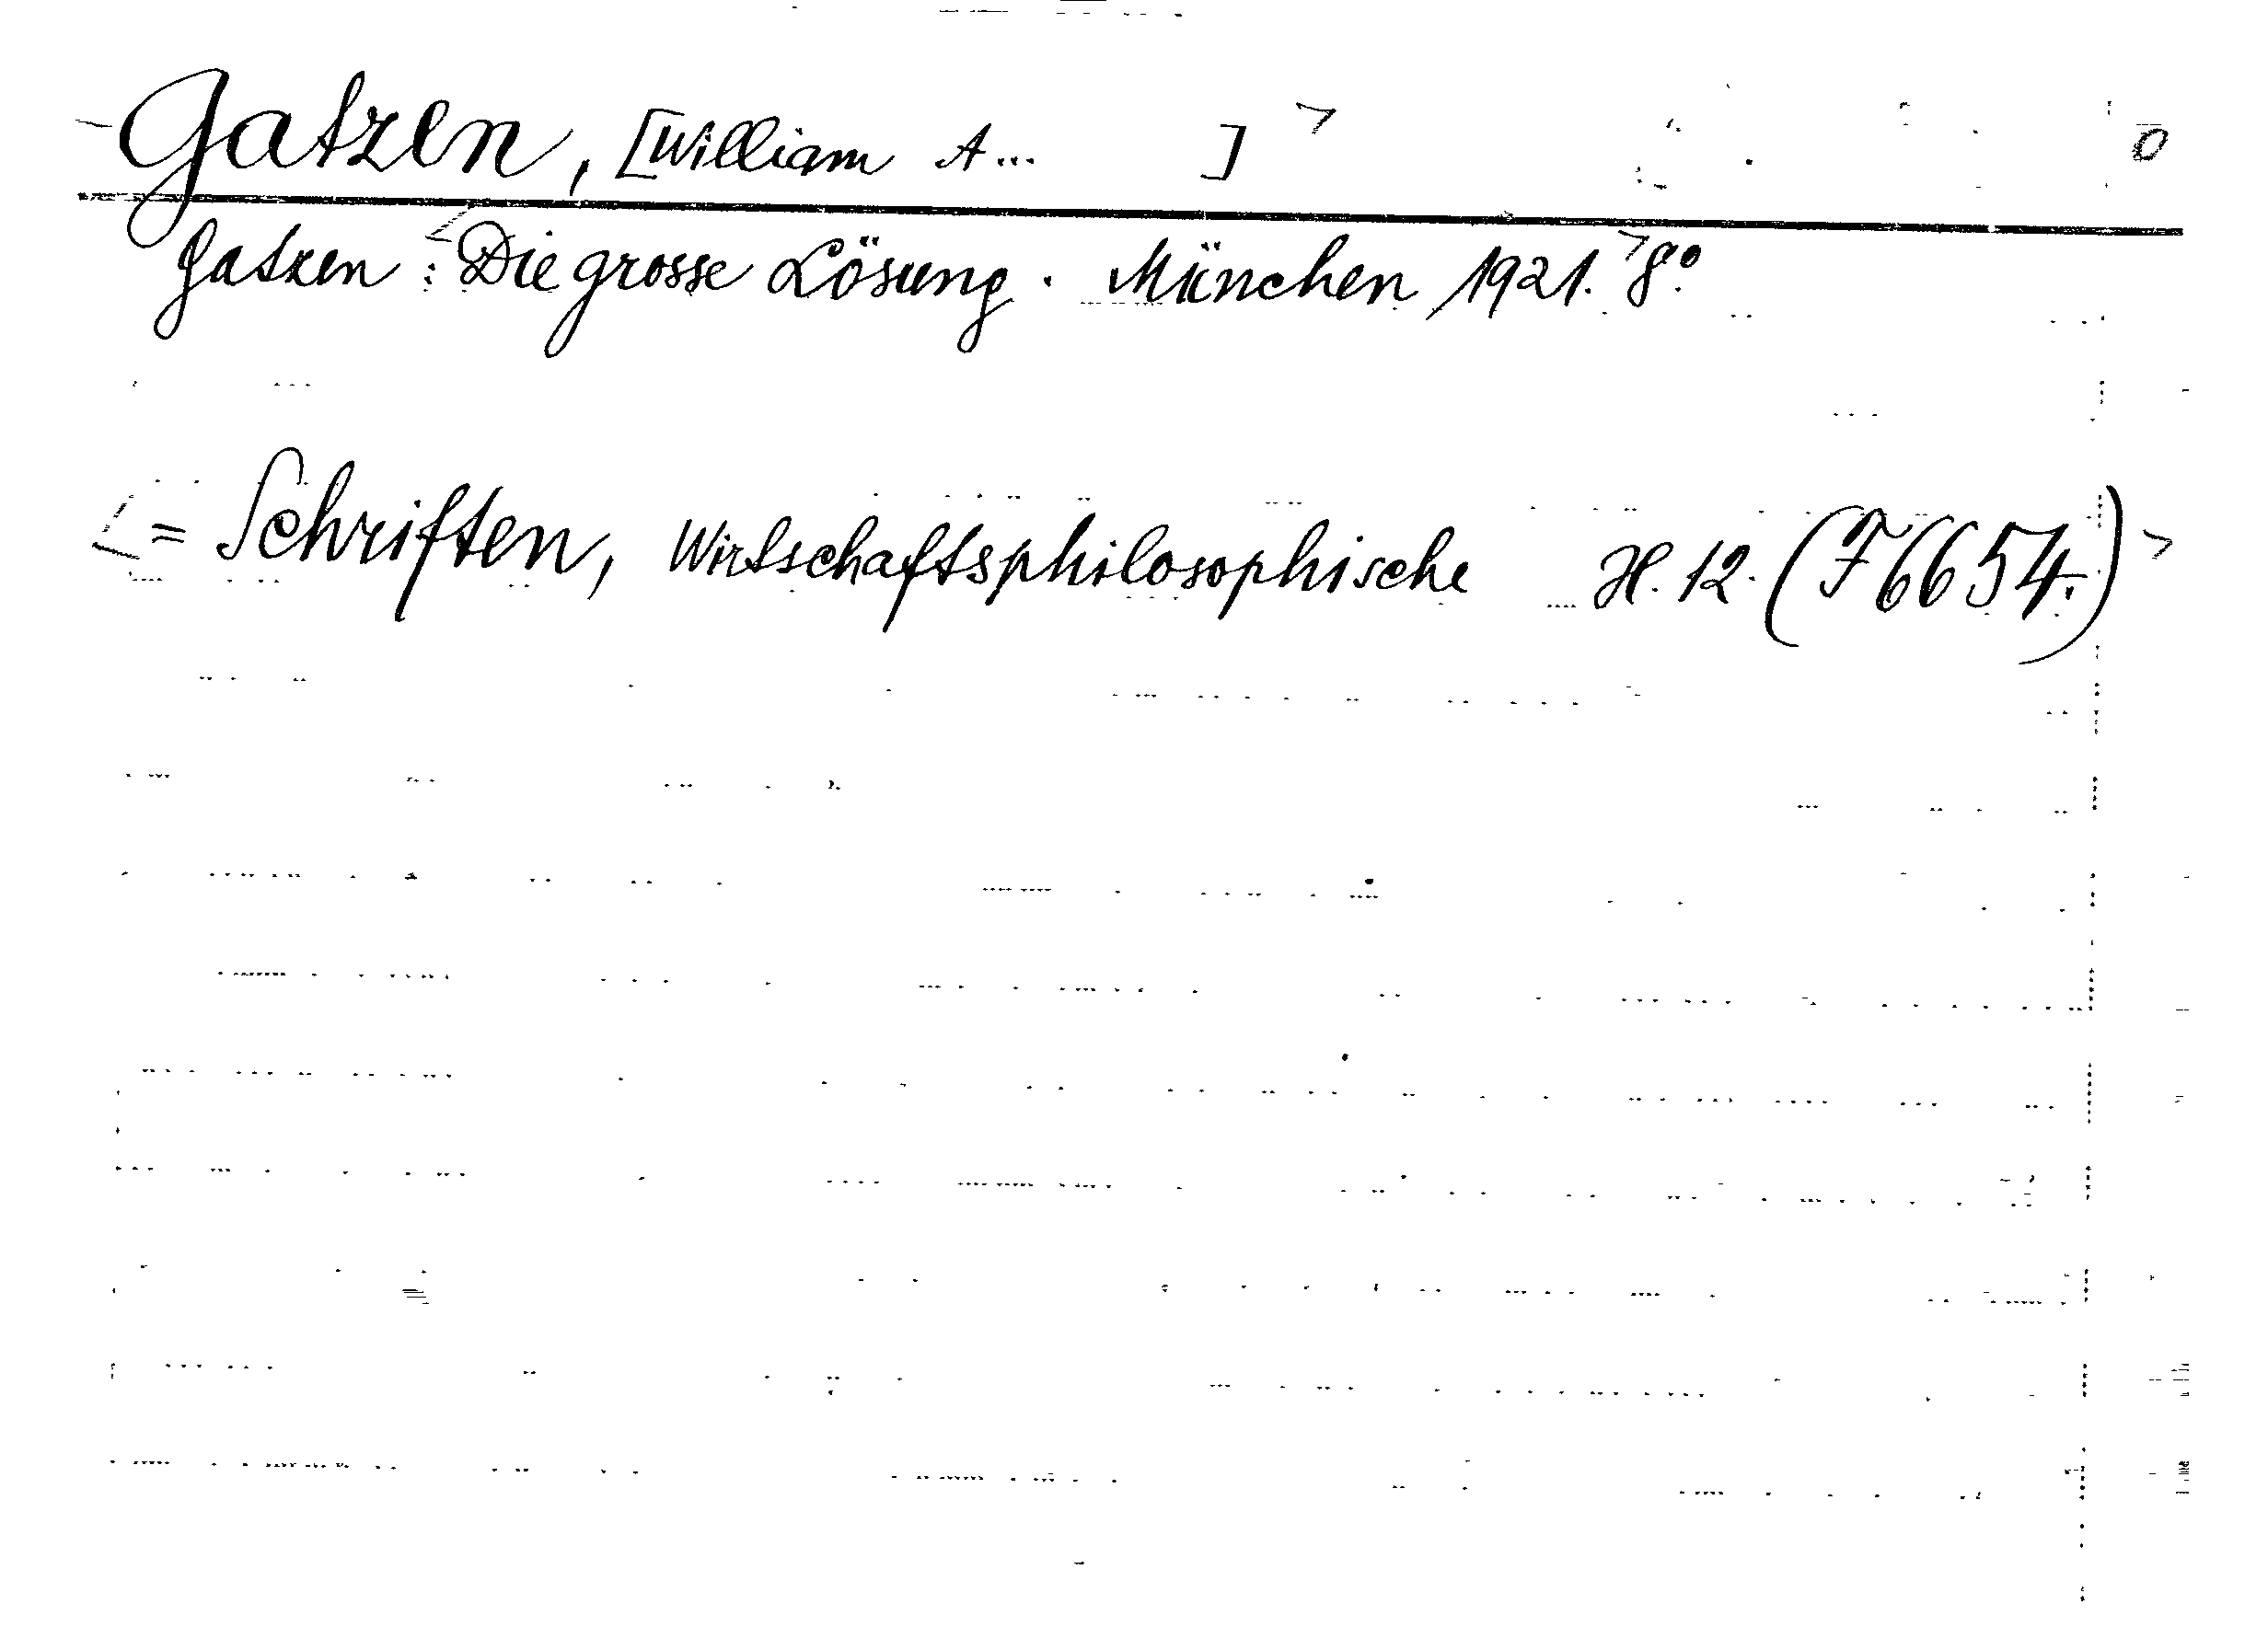 Gatzen, [William A... ] > 0
Gatzen: <Die grosse Lösung. München 1921.> 8°
<= Schriften, Wirtschaftsphilosophische H. 12. (F 6654.)>